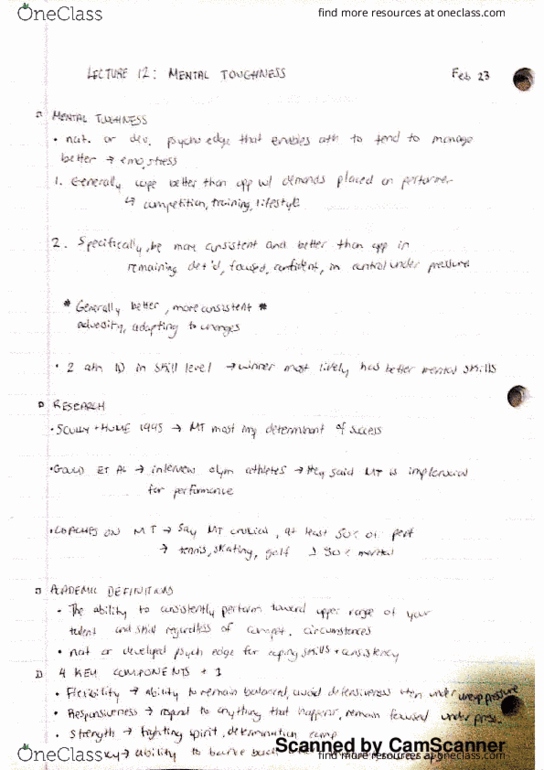 OneClass
find more resources at oneclass.com
LECTURE 12: MENTAL TOUGHNESS Feb 23
MENTAL TOUGHNESS
• nat. or dev. psycho edge that enables ath to tend to manage
better → emo, stress
1. Generally cope better than opp w/ demands placed on performer
↳ competition, training, lifestyle
2. Specifically, be more consistent and better than opp in
remaining det'd, focused, confident, in control under pressure
* Generally better, more consistent *
adversity, adapting to changes
• 2 ath in skill level → winner most likely has better mental skills
RESEARCH
• SCULLY + HUME 1995 → MT most imp determinant of success
• GOULD ET AL → interview olym athletes → they said MT is
for performance
• COACHES ON MT → say MT crucial, at least 50% of perf
→ tennis, skating, golf 90% mental
ACADEMIC DEFINITIONS
• The ability to consistently perform toward upper range of your
talent and skill regardless of compet. circumstances
• nat or developed psych edge for coping skills + consistency
4 KEY COMPONENTS + 1
• Flexibility → ability to remain balanced, avoid defensiveness when under pressure
• Responsiveness → respond to anything that happens, remain focused under press.
• Strength → fighting spirit, determination
→ ability to bounce back
Scanned by CamScanner
OneClass
find more resources at oneclass.com